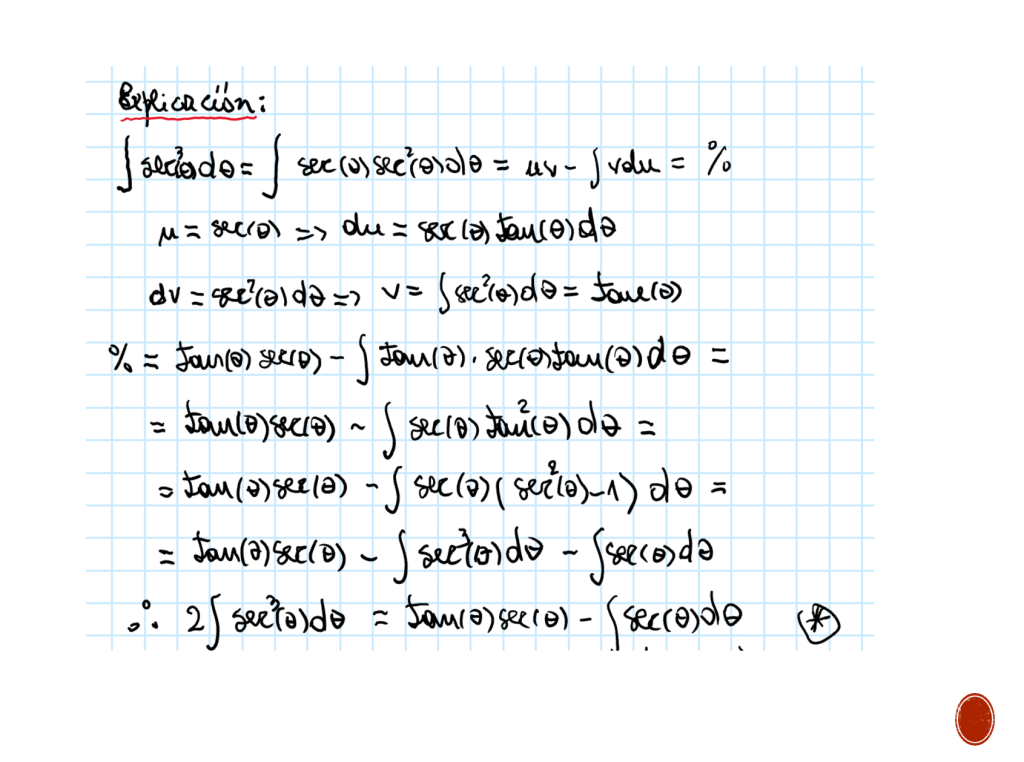 Explicación:
∫ sec³(θ)dθ = ∫ sec(θ) sec²(θ)dθ = uv - ∫ vdu = %
u = sec(θ) => du = sec(θ) tan(θ)dθ
dv = sec²(θ)dθ => v = ∫ sec²(θ)dθ = tan(θ)
% = tan(θ) sec(θ) - ∫ tan(θ) · sec(θ) tan(θ) dθ =
= tan(θ) sec(θ) - ∫ sec(θ) tan²(θ) dθ =
= tan(θ) sec(θ) - ∫ sec(θ) (sec²(θ)-1) dθ =
= tan(θ) sec(θ) - ∫ sec³(θ) dθ - ∫ sec(θ) dθ
∴ 2∫ sec³(θ)dθ = tan(θ) sec(θ) - ∫ sec(θ) dθ (*)